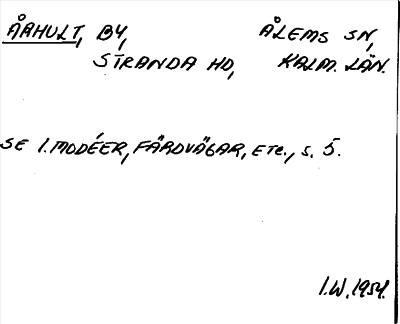 ÅRHULT, BY, ÅLEMS SN,
STRANDA HD, KALM. LÄN.
SE I. MODÉER, FÄRDVÄGAR, ETC., S. 5.
I.W. 1954.